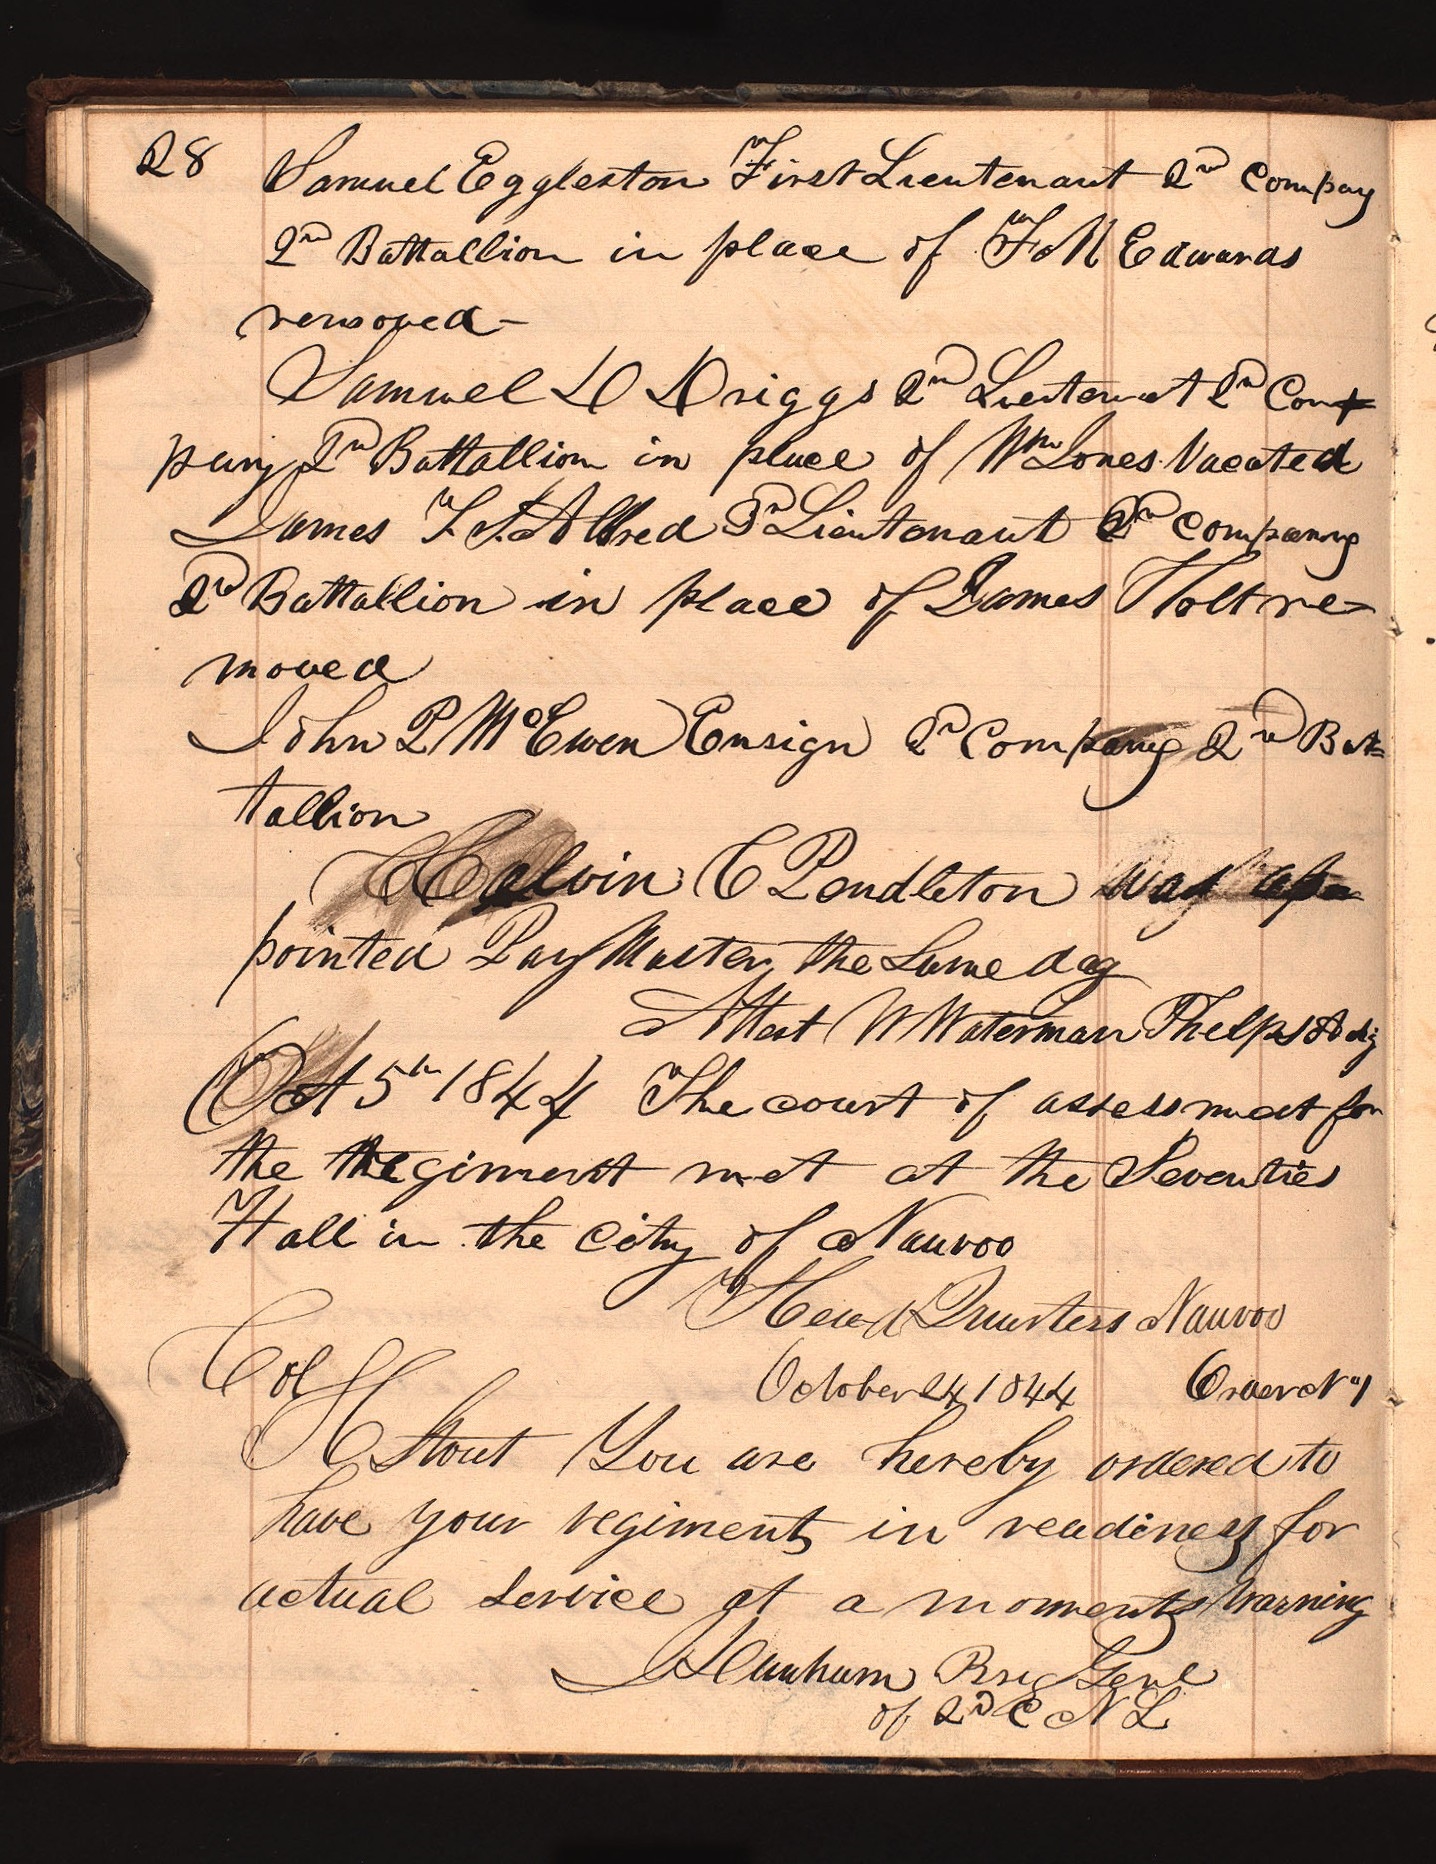 28
Samuel Eggleston First Lieutenant 2nd Compay
2nd Battallion in place of F M Edwards
removed-
Samuel D Driggs 2nd Lieutenat 2nd Com
pany 2nd Battallion in place of Wm Jones Vacated
James T S Allred 3d Lieutenant 2nd Company
2nd Battallion in place of James Holt re=
moved
John P McEwen Ensign 2d Company 2nd Bat=
tallion
Calvin C Pendleton was ap=
pointed Pay Master the Same day
Attest W Waterman Phelps Adj
Oct 5th 1844 The court of assessmeat for
the Regiment met at the Seventies
Hall in the City of Nauvoo
Head Quarters Nauvoo
Col October 24 1844 Order No 1
H Stout You are hereby ordered to
have your regiment in readiness for
actual Service at a moments warning
Dunham Brig Genl
of 2d C N L